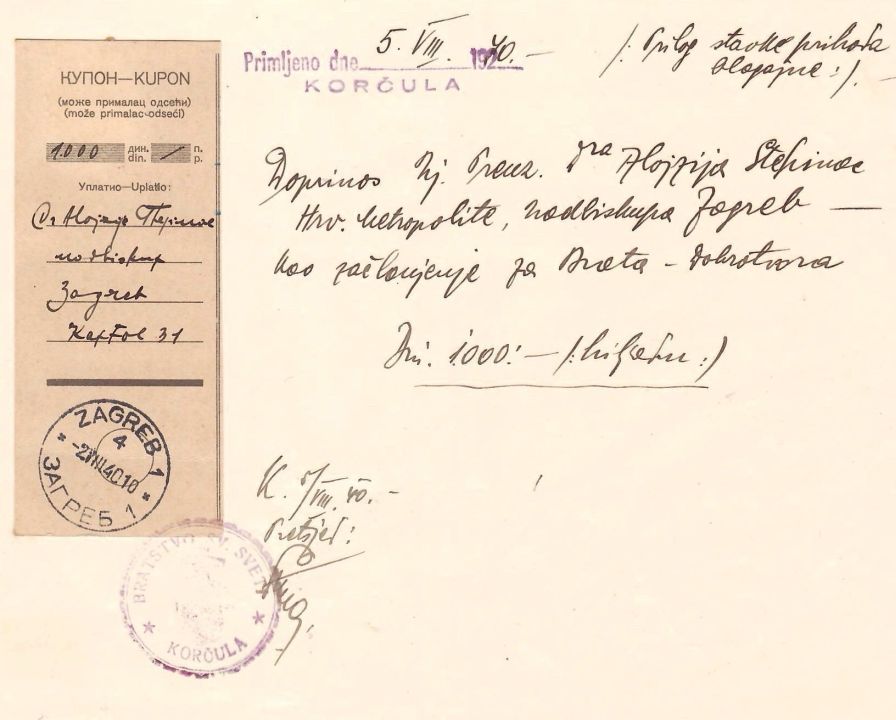 КУПОН—KUPON
(може прималац одсећи)
(može primalac odseći)
1.000 дин. din. / п. p.
Уплатио—Uplatio:
Dr Alojzije Stepinac
nadbiskup
Zagreb
Kaptol 31
ZAGREB 1
4
-2VIII.40 10
ЗАГРЕБ 1
Primljeno dne 5. VIII. 1940.-
KORČULA
/: Prilog stavke prihoda
blagajne :/.
Doprinos Nj. Preuz. Dra Alojzija Stepinac
Hrv. Metropolite, nadbiskupa Zagreb —
kao začlanjenje za Brata - Dobrotvora
Din. 1.000:— /: hiljadu :/
K. 5/VIII. 40. -
Pretsjed:
BRATSTVO SVIH SVETI
KORČULA